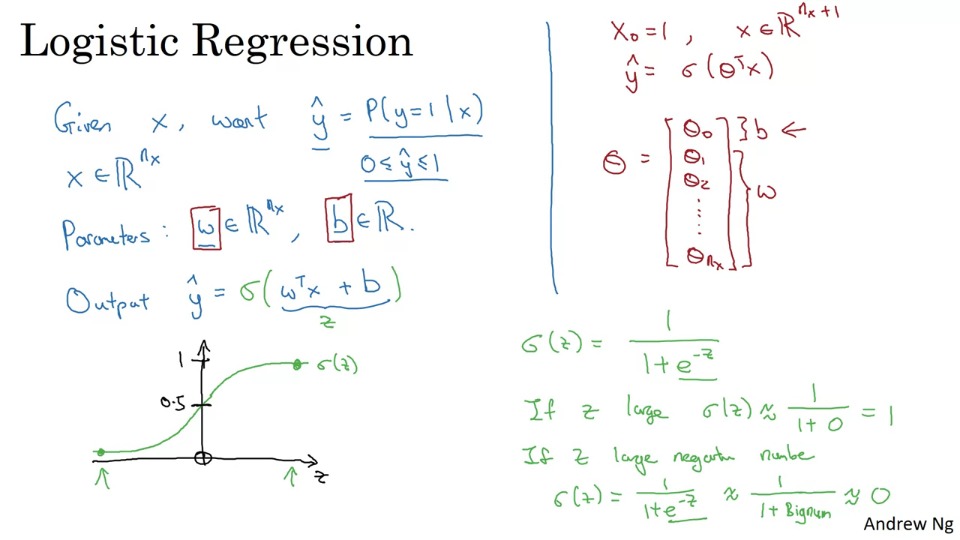 Logistic Regression
Given x, want ŷ = P(y=1|x)
x ∈ ℝ^{n_x}
0 ≤ ŷ ≤ 1
Parameters: w ∈ ℝ^{n_x}, b ∈ ℝ.
Output ŷ = σ(wᵀx + b)
z
1
σ(z)
0.5
z
x₀ = 1, x ∈ ℝ^{n_x+1}
ŷ = σ(θᵀx)
θ = [θ₀ θ₁ θ₂ ⋮ θ_{n_x}]
} b ←
} w
σ(z) = 1/(1+e^{-z})
If z large σ(z) ≈ 1/(1+0) = 1
If z large negative number
σ(z) = 1/(1+e^{-z}) ≈ 1/(1+Bignum) ≈ 0
Andrew Ng